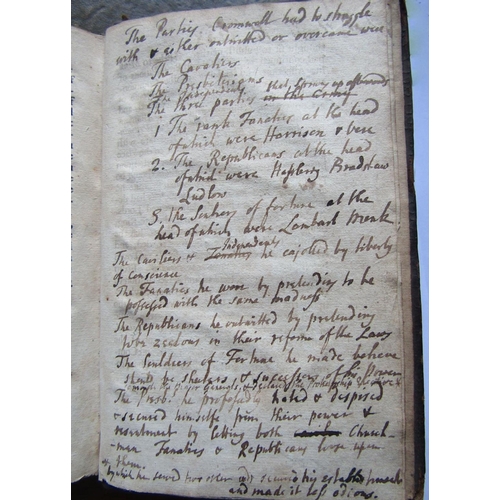 The Parties Cromwell had to struggle
with & either outwitted or overcame were
The Cavaliers
The Presbiterians
The Independents
The three parties that sprung up afterwards in the Army
1 The rank Fanatics at the head
of which were Harrison & Vere
2. The Republicans at the head
of which were Haslberg Bradshaw
Ludlow
3. The Seekers of fortune at the
head of which were Lambart Monk
The Cavileers & Fanatics Independents he cajolled by liberty
of conscience
The Fanatics he wore by pretending to be
possessed with the same madness
The Republicans he outwitted by pretending
to be zealous in their reforme of the Laws
The Souldiers of Fortune he made believe
should be sharers & successors of his Power
The Presb: he profoundly hated & despised
& secured himself from their power &
resentment by letting both Church-
man Fanatics & Republicans loose upon
them.
by which he served two ends secured his establishment
and made it less odious.